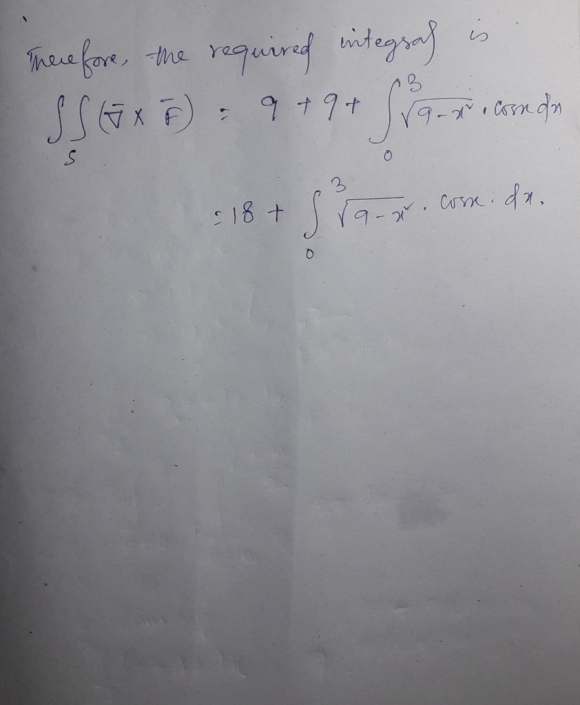 Therefore, the required integral is
∫∫_S (∇̄ × F̄) = 9 + 9 + ∫_0^3 √(9-x²) · cosx dx
= 18 + ∫_0^3 √(9-x²) · cosx · dx.